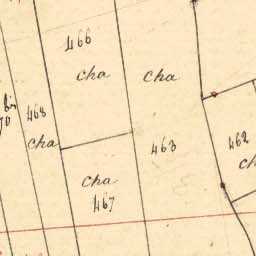 466
Cha
Cha
468
Cha
463
462
Cha
467